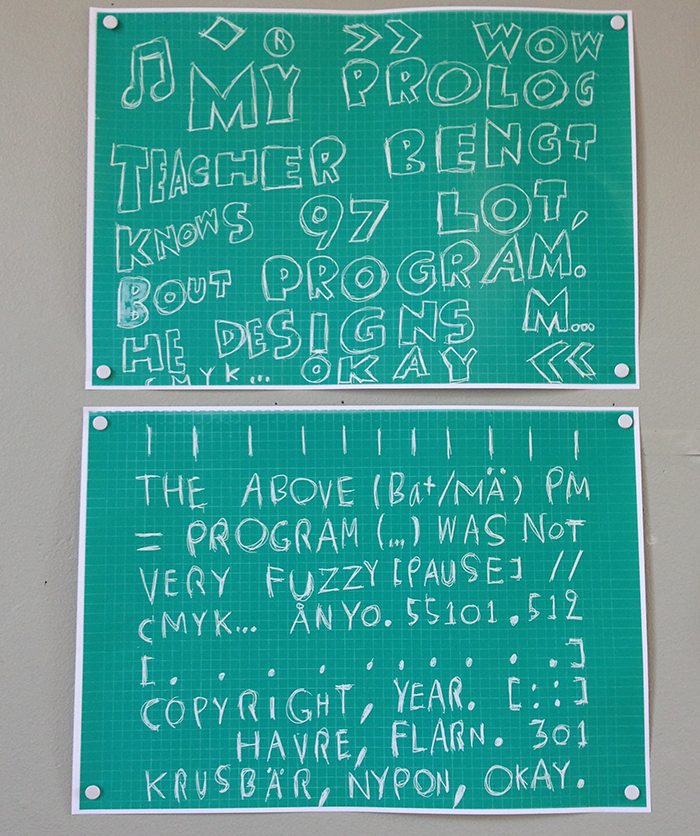 ♫ ◇ ® >> WOW
MY PROLOG
TEACHER BENGT
KNOWS 97 LOT,
BOUT PROGRAM.
HE DESIGNS M...
CMYK... OKAY <<
| | | | | | | | | | | |
THE ABOVE (Bat/MÄ) PM
= PROGRAM (...) WAS NOT
VERY FUZZY [PAUSE] //
CMYK... ÅNYO. 55101.512
[. . . . . . . . . .]
COPYRIGHT, YEAR. [::]
HAVRE, FLARN. 301
KRUSBÄR, NYPON, OKAY.